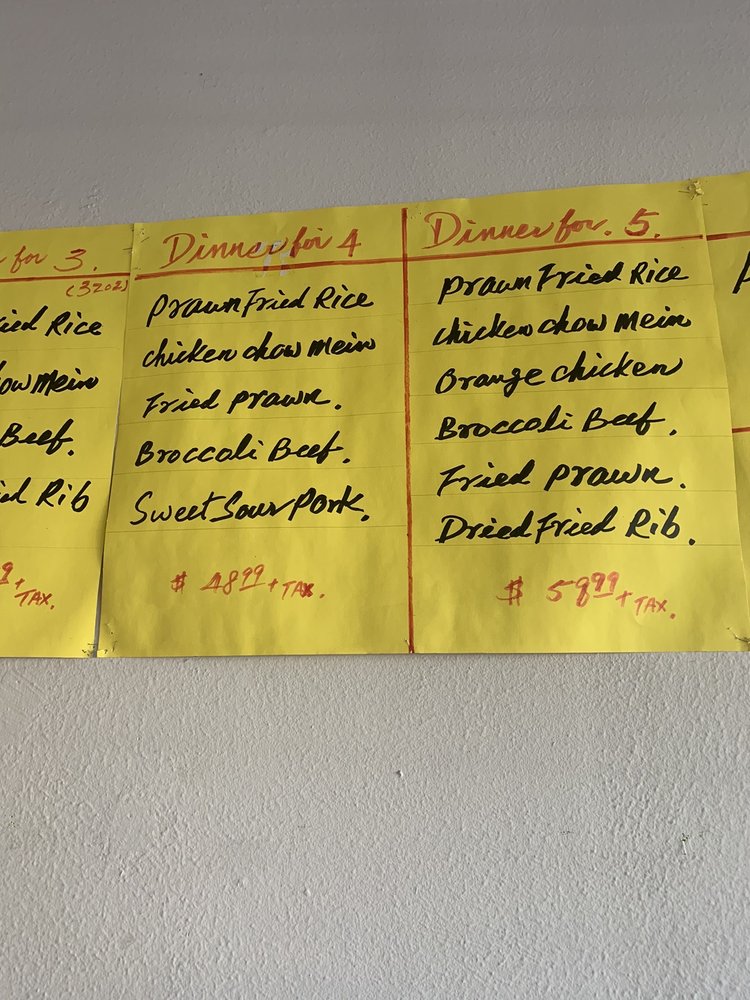 for 3.
(3202)
Rice
Mein
Beef.
Rib
+ TAX.
Dinner for 4
Prawn Fried Rice
chicken chow Mein
Fried prawn.
Broccoli Beef.
Sweet Sour Pork.
$ 48.99 + TAX.
Dinner for. 5.
prawn Fried Rice
chicken chow Mein
Orange chicken
Broccoli Beef.
Fried prawn.
Dried Fried Rib.
$ 58.99 + TAX.